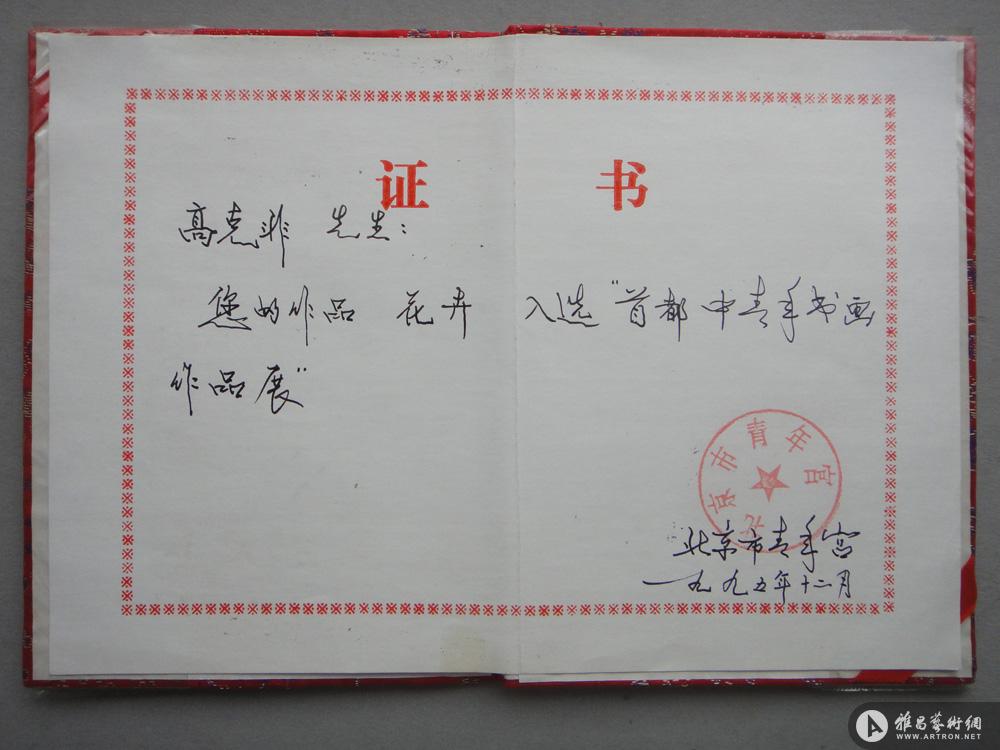 证 书
高克非 先生：
您的作品 花卉 入选“首都中青年书画
作品展”
北京市青年宫
北京市青年宫
一九九五年十二月
雅昌藝術網
WWW.ARTRON.NET